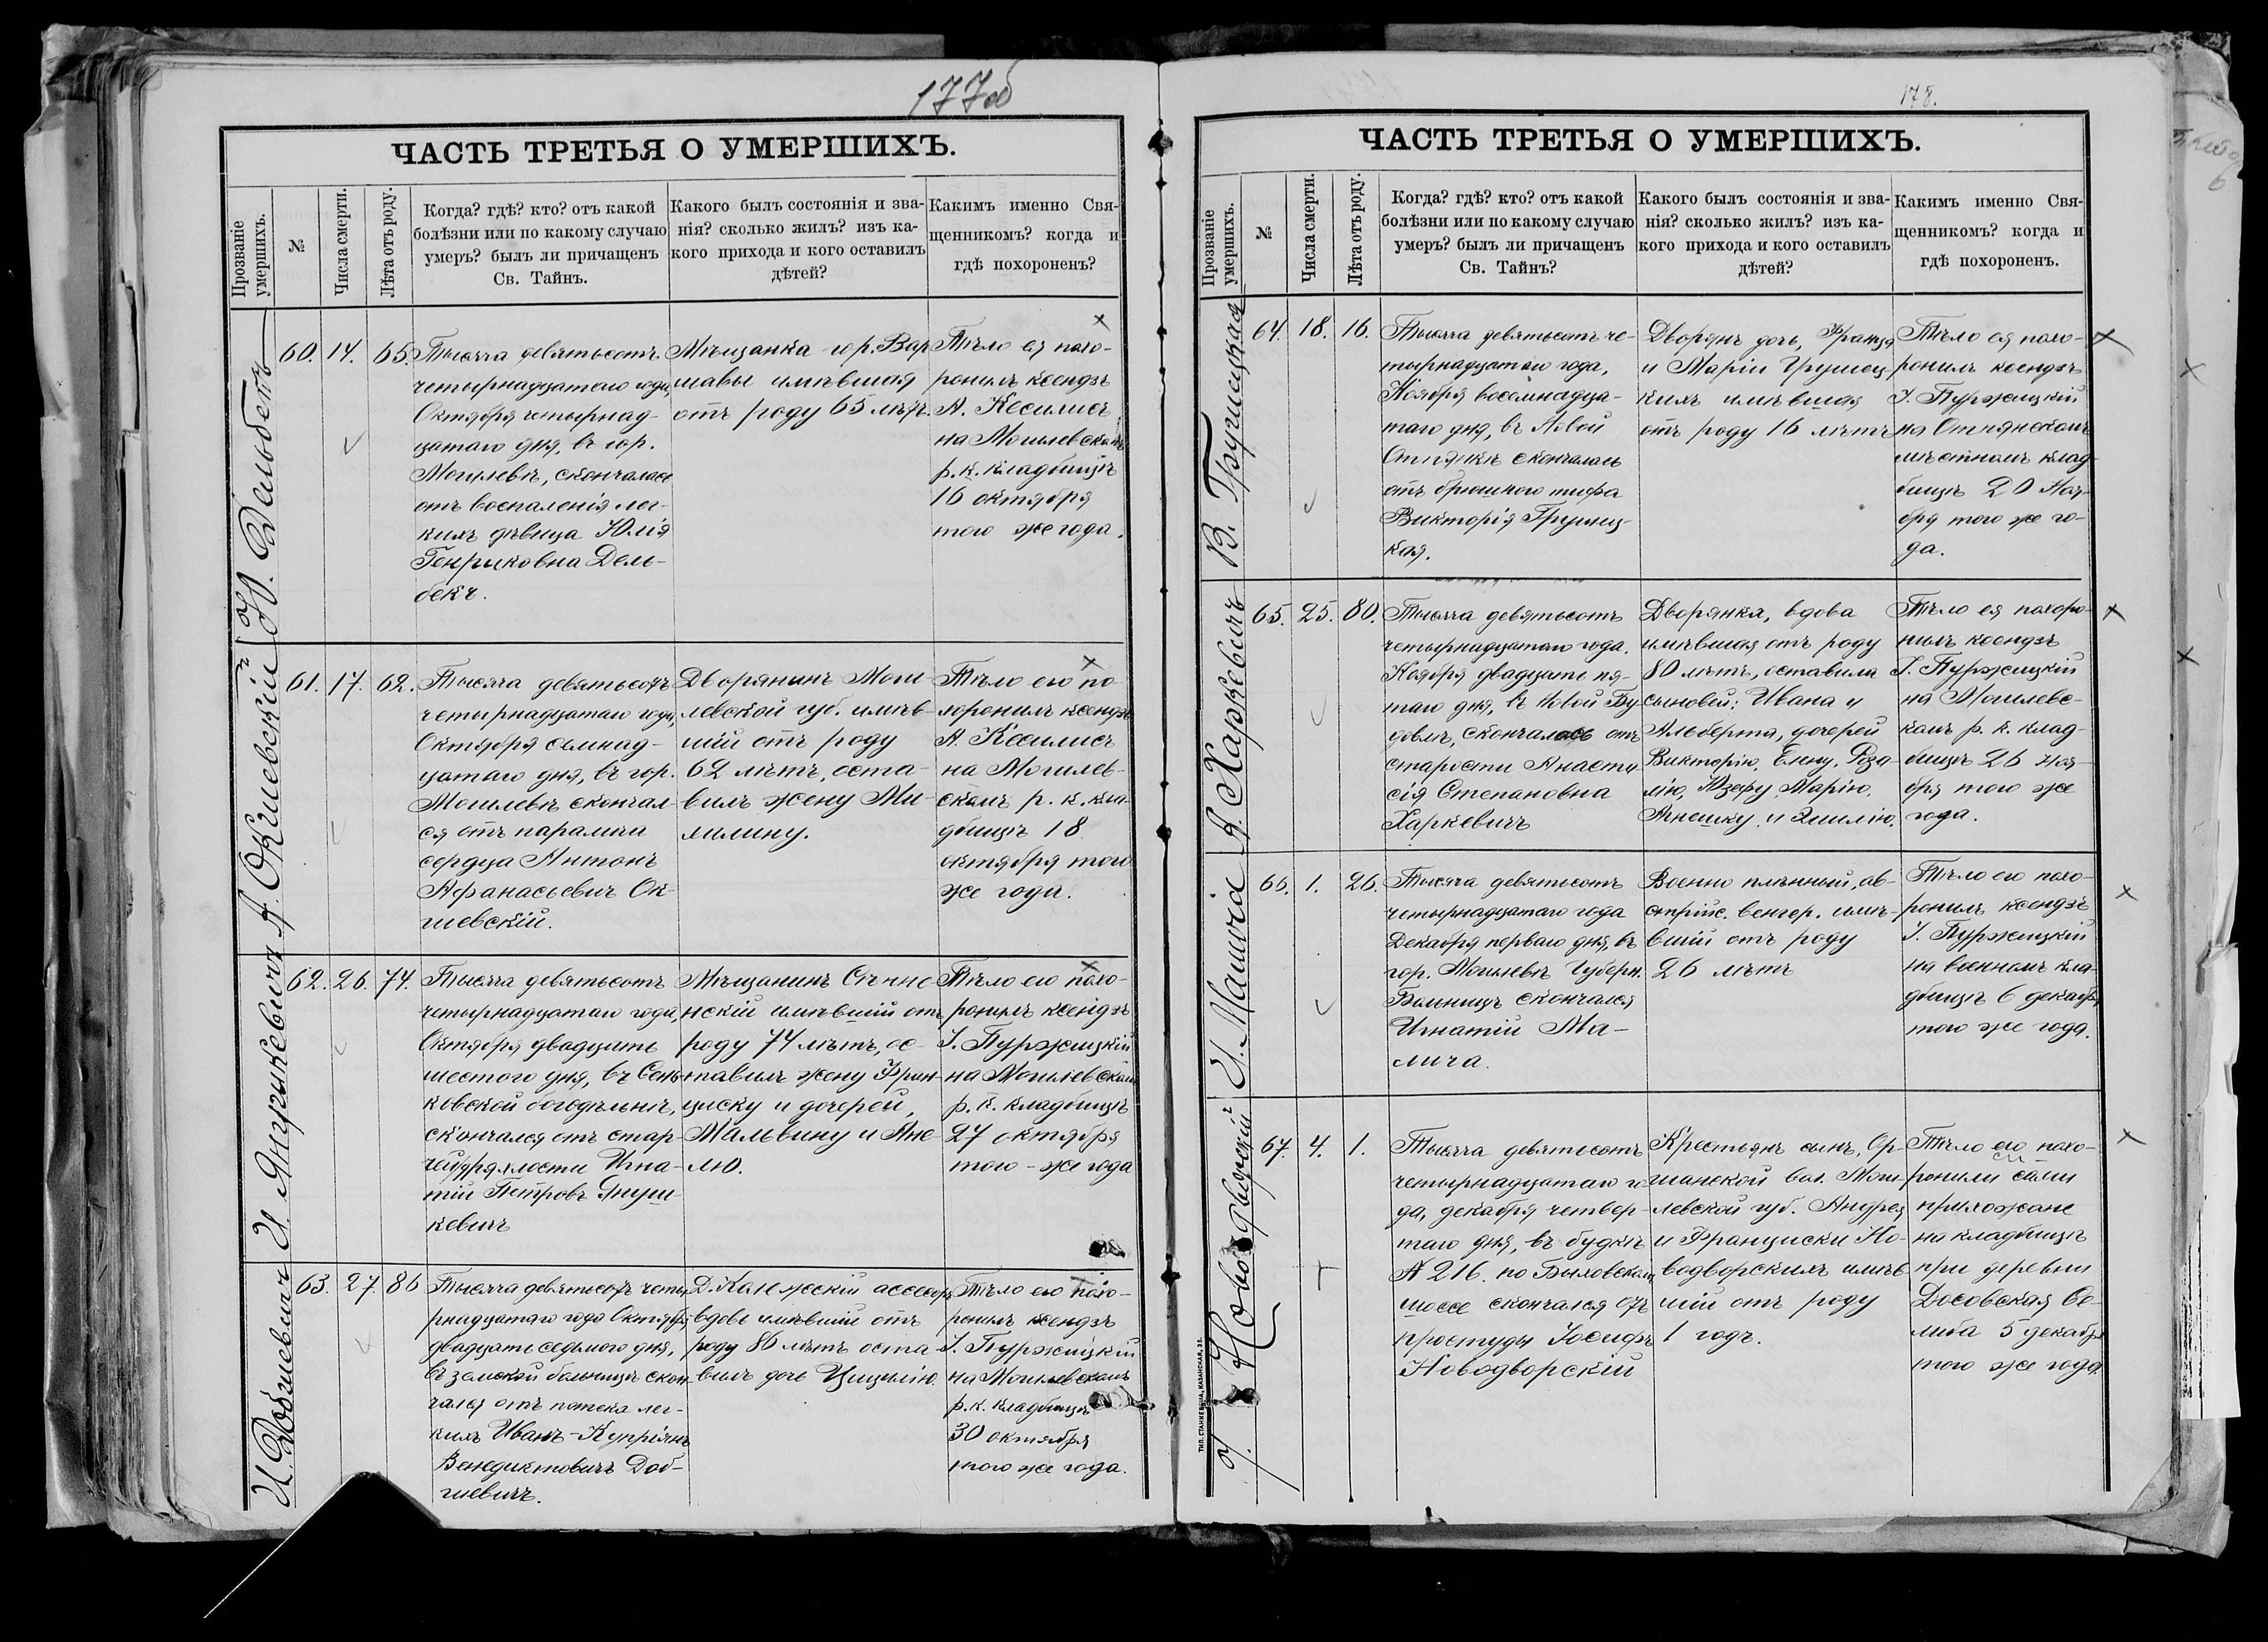 177об
ЧАСТЬ ТРЕТЬЯ О УМЕРШИХЪ.
Прозваніе умершихъ.
№
Числа смерти.
Лѣта отъ роду.
Когда? гдѣ? кто? отъ какой
болѣзни или по какому случаю
умеръ? былъ ли причащенъ
Св. Тайнъ.
Какого былъ состоянія и зва-
нія? сколько жилъ? изъ ка-
кого прихода и кого оставилъ
дѣтей?
Какимъ именно Свя-
щенникомъ? когда и
гдѣ похороненъ?
60. 14. 65.
Тысяча девятьсотъ
четырнадцатаго года,
Октября четырнад-
цатаго дня, въ гор.
Могилевѣ, скончалась
отъ воспаленія лег-
кихъ дѣвица Юлія
Генриковна Дель-
бекъ.
Мѣщанка гор. Вар
шавы имѣвшая
отъ роду 65 лѣтъ.
Тѣло ея похо-
ронилъ ксендзъ
А. Кесилисъ
на Могилевскомъ
р. к. кладбищѣ
16 октября
того же года.
А. Окшевскій
61. 17. 62.
Тысяча девятьсотъ
четырнадцатаго года,
Октября семнад-
цатаго дня, въ гор.
Могилевѣ скончал-
ся отъ паралича
сердца Антонъ
Афанасьевич Ок-
шевскій.
Дворянинъ Моги
левской губ. имѣв-
шій отъ роду
62 лѣтъ, оста-
вилъ жену Ми-
халину.
Тѣло его по-
хоронилъ ксендзъ
А. Кесилисъ
на Могилев-
скомъ р. к. кла-
дбищѣ 18
октября того
же года.
И. Янушкевичъ
62. 26. 74.
Тысяча девятьсотъ
четырнадцатаго года,
Октября двадцать
шестого дня, въ Сень-
ковской богодѣльнѣ,
скончался отъ стар-
чей дряхлости Игна-
тій Петровъ Януш-
кевичъ
Мѣщанинъ Сѣнне-
нскій имѣвшій отъ
роду 74 лѣтъ, ос-
тавилъ жену Фран-
циску и дочерей,
Мальвину и Ане-
лю.
Тѣло его похо-
ронилъ ксендзъ
І. Пуржицкій
на Могилевскомъ
р. к. кладбищѣ
27 октября
того-же года
И. Добшевичъ
63. 27. 86
Тысяча девятьсотъ четы
рнадцатаго года Октября
двадцать седьмого дня,
въ земской больницѣ скон-
чался отъ потека лег-
кихъ Иванъ-Купріянъ
Венедиктовичъ Доб-
шевичъ.
Д. Колежскій ассесоръ
вдовъ имѣвшій отъ
роду 86 лѣтъ оста-
вилъ дочь Цицилію.
Тѣло его похо-
ронилъ ксендзъ
І. Пуржицкій
на Могилевскомъ
р. к. кладбищѣ
30 октября
того же года.
178.
ЧАСТЬ ТРЕТЬЯ О УМЕРШИХЪ.
Прозваніе умершихъ.
№
Числа смерти.
Лѣта отъ роду.
Когда? гдѣ? кто? отъ какой
болѣзни или по какому случаю
умеръ? былъ ли причащенъ
Св. Тайнъ?
Какого былъ состоянія и зва-
нія? сколько жилъ? изъ ка-
кого прихода и кого оставилъ
дѣтей?
Какимъ именно Свя-
щенникомъ? когда и
гдѣ похороненъ.
В. Грушецкая
64. 18. 16.
Тысяча девятьсотъ че-
тырнадцатаго года,
Ноября восемнадца-
таго дня, въ Новой
скончалась
отъ брюшного тифа
Викторія Грушец-
кая.
Дворянъ дочь, Франца
и Маріи Грушец
кихъ имѣвшая
отъ роду 16 лѣтъ
Тѣло ея похо-
ронилъ ксендзъ
І. Пуржицкій
на
мѣстномъ клад-
бищѣ 20 Ноя-
бря того же го-
да.
А. Харкевичъ
65. 25. 80.
Тысяча девятьсотъ
четырнадцатаго года.
Ноября двадцать пя-
таго дня, въ Новой Бу-
довлѣ, скончалась отъ
старости Анаста
сія Степановна
Харкевичъ
Дворянка, вдова
имѣвшая отъ роду
80 лѣтъ, оставила
сыновей: Ивана и
Альберта, дочерей
Викторію, Елену, Роза-
лію, Юзефу, Марію,
Агнешку и Эмилію.
Тѣло ея похоро-
нилъ ксендзъ
І. Пуржицкій
на Могилевс-
комъ р. к. клад-
бищѣ 26 ноя-
бря того же
года.
И. Малича
66. 1. 26.
Тысяча девятьсотъ
четырнадцатаго года
Декабря перваго дня, въ
гор. Могилевѣ Губерн.
Больницѣ скончался
Игнатій Ма-
лича.
Военно плѣнный, ав-
стрійс. венгер. имѣ-
вшій отъ роду
26 лѣтъ
Тѣло его похо-
ронилъ ксендзъ
І. Пуржицкій
на военномъ кла-
дбищѣ 6 декабря
того же года.
І. Новодворскій
67. 4. 1.
Тысяча девятьсотъ
четырнадцатаго го-
да, декабря четвер-
таго дня, въ будкѣ
№ 216. по Быховскому
шоссе скончался отъ
простуды Іосифъ
Новодворскій
Крестьянъ сынъ, Ор-
шанской вол. Моги-
левской губ. Андрея
и Франциски Но-
водворскихъ имѣв-
шій отъ роду
1 годъ.
Тѣло его похо-
ронили сами
прихожане
на кладбищѣ
при деревни
Досовская Се-
либа 5 декабря
того же года.
ТИП. СТАНКЕВИЧА, КАЗАНСКАЯ, 33.